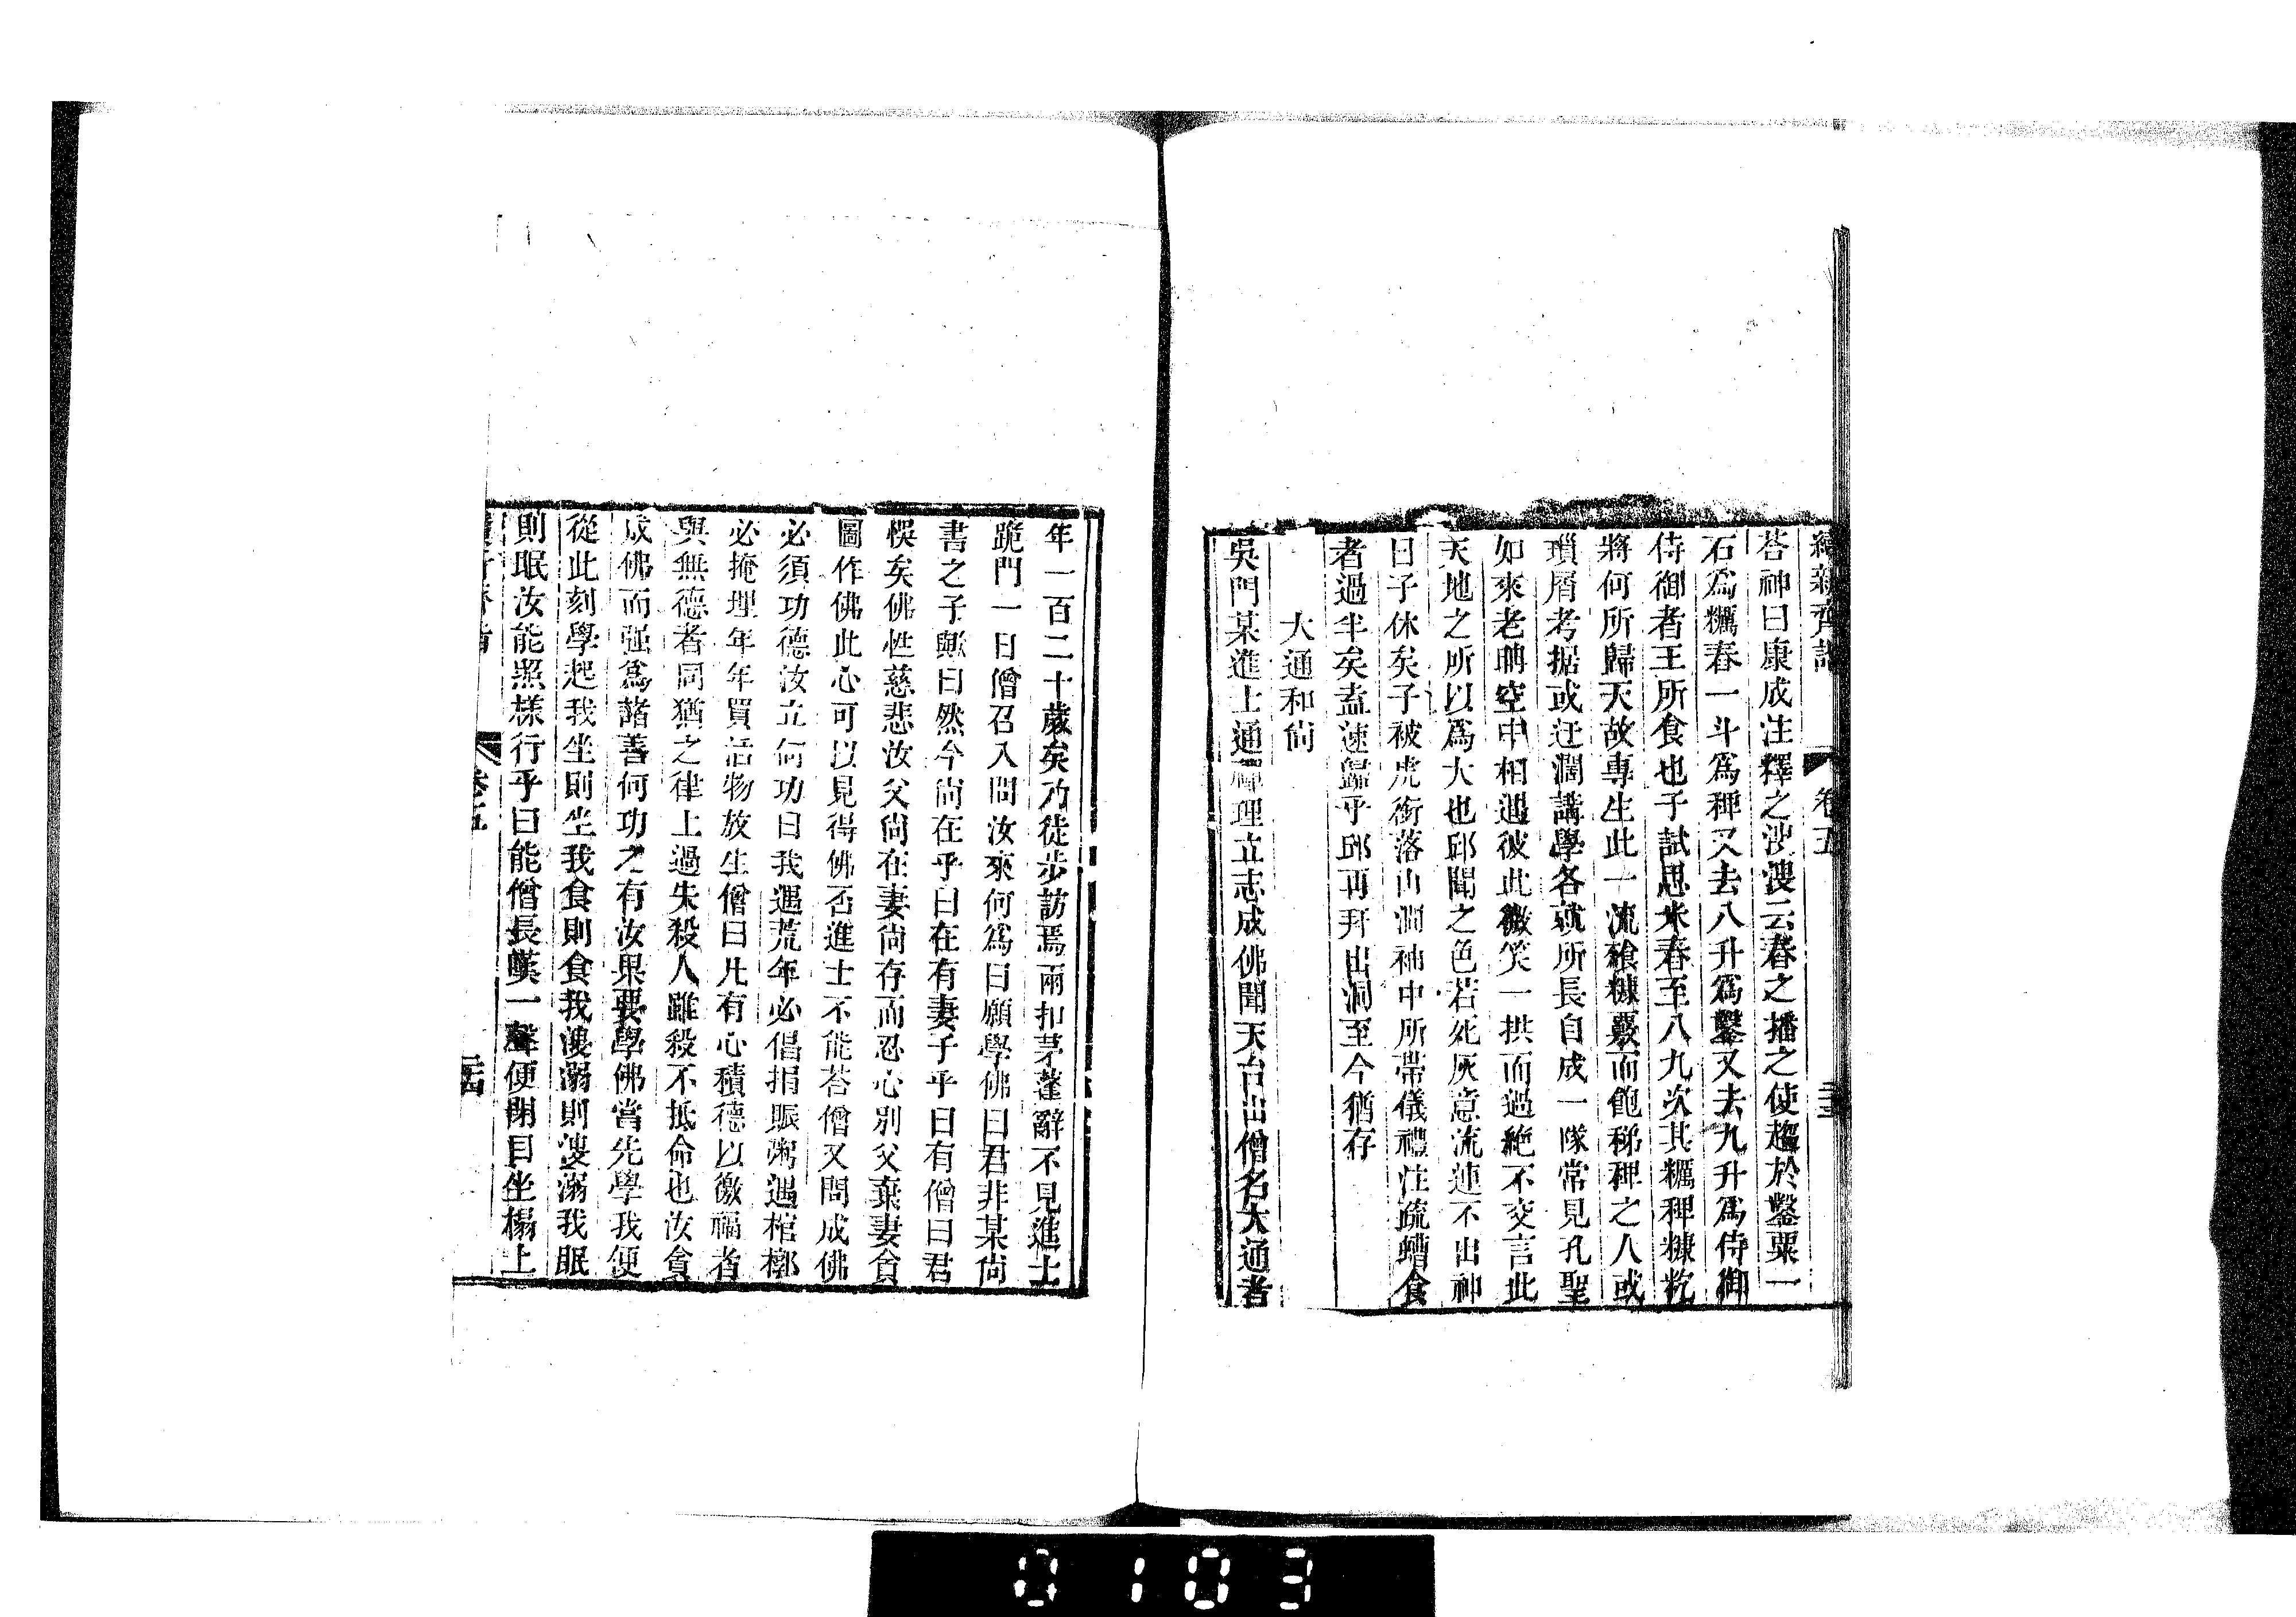 續新齊諧
卷五
荅神曰康成注釋之浙溲云春之播之使趨於鑿粟一
石爲糲春一斗爲稗又去八升爲鑿又去九升爲侍御
侍御者王所食也子試思米春至八九次其糲稗糠籺
將何所歸天故專生此一流飡糠覈而飽稊稗之人或
瑣屑考据或迂濶講學各就所長自成一隊常見孔聖
如來老聃空中相遇彼此微笑一拱而過絶不交言此
天地之所以爲大也邱聞之色若死灰意流連不出神
曰子休矣子被虎銜落山澗神中所帶儀禮注疏蟫食
者過半矣盍速歸乎邱再拜出洞至今猶存
大通和尙
吳門某進士通禪理立志成佛聞天台山僧名大通者
年一百二十歲矣乃徒步訪焉兩扣茅蓬辭不見進士
跪門一日僧召入問汝來何爲曰願學佛曰君非某尙
書之子歟曰然今尙在乎曰在有妻子乎曰有僧曰君
悞矣佛性慈悲汝父尙在妻尙存而忍心别父棄妻貪
圖作佛此心可以見得佛否進士不能荅僧又問成佛
必須功德汝立何功曰我遇荒年必倡捐賑粥遇棺槨
必掩埋年年買活物放生僧曰凡有心積德以徼福者
與無德者同猶之律上過失殺人雖殺不抵命也汝貪
成佛而强爲諸善何功之有汝果要學佛當先學我便
從此刻學起我坐則坐我食則食我溲溺則溲溺我眠
則眠汝能照樣行乎曰能僧長嘆一聲便閉目坐榻上
卷五